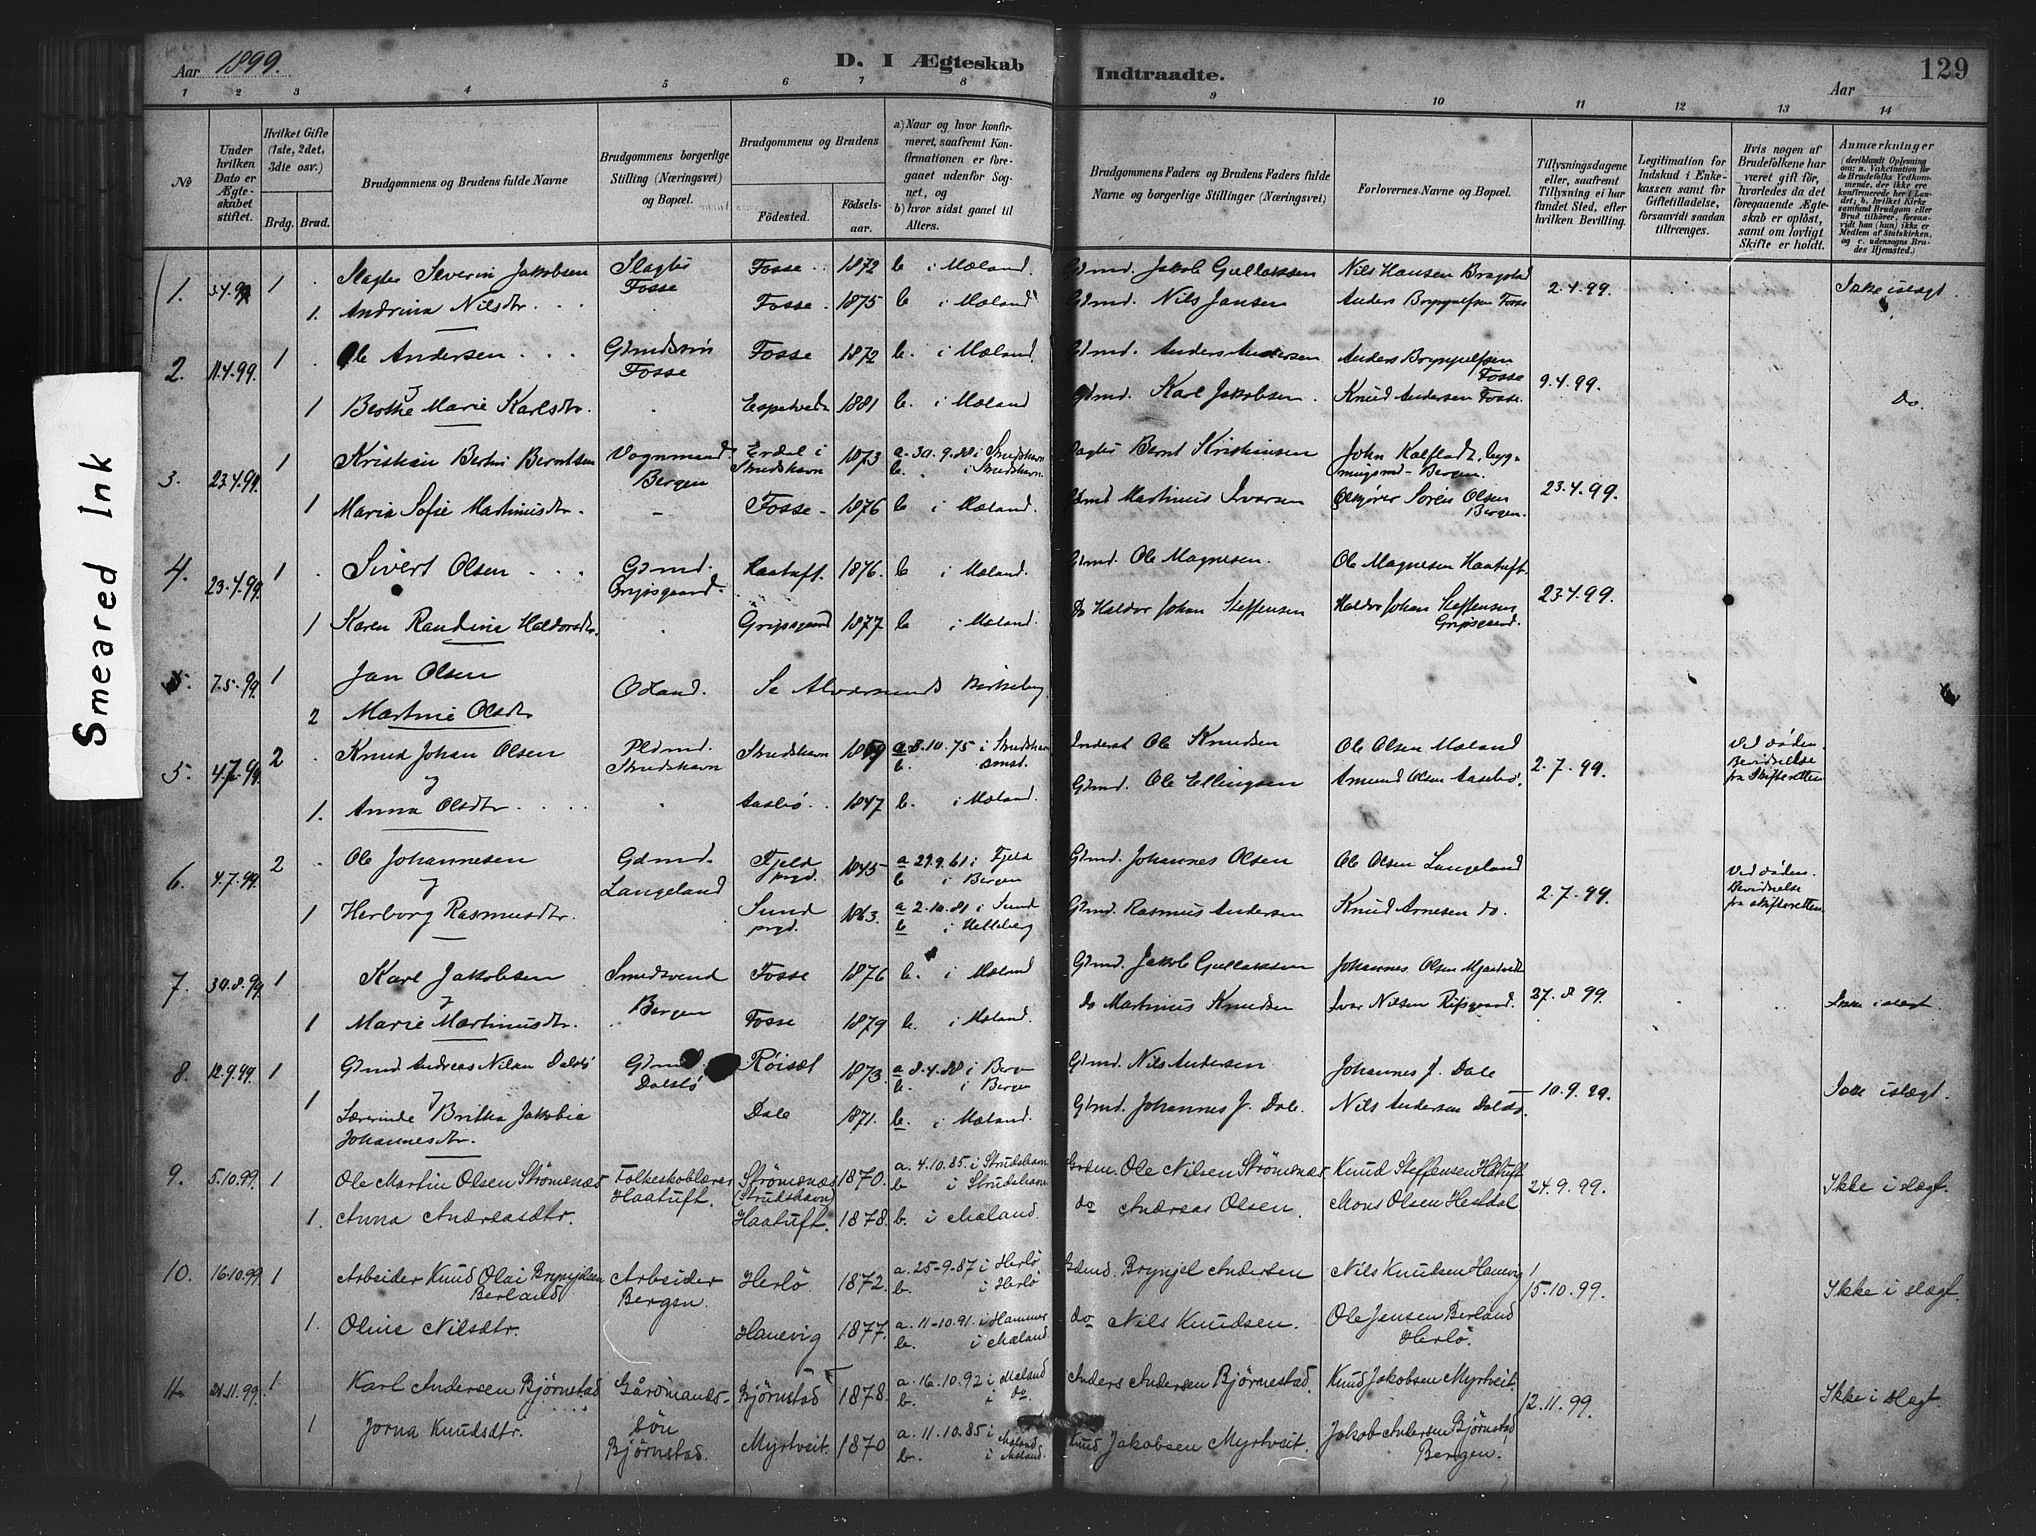 Aar 1899.
D. I Ægteskab
Indtraadte.
Aar
129
1 2 3 4 5 6 7 8 9 10 11 12 13 14
No
Under hvilken Dato er Ægteskabet stiftet.
Hvilket Gifte (1ste, 2det, 3die osv.)
Brdg. Brud.
Brudgommens og Brudens fulde Navne
Brudgommens borgerlige Stilling (Næringsvei) og Bopæl.
Brudgommens og Brudens
Födested.
Födselsaar.
a) Naar og hvor konfirmeret, saafremt Konfirmationen er foregaaet udenfor Sognet, og
b) hvor sidst gaaet til Alters.
Brudgommens Faders og Brudens Faders fulde Navne og borgerlige Stillinger (Næringsvei)
Forlovernes Navne og Bopæl.
Tillysningsdagene eller, saafremt Tillysning ei har fundet Sted, efter hvilken Bevilling.
Legitimation for Indskud i Enkekassen samt for Giftetilladelse, forsaavidt saadan tiltrænges.
Hvis nogen af Brudefolkene har været gift för, hvorledes da det foregaaende Ægteskab er oplöst, samt om lovligt Skifte er holdt.
Anmærkninger
(deriblandt Oplysning om: a. Vakcination for de Brudefolks Vedkommende, der ikke ere konfirmerede her i Landet; b. hvilket Kirkesamfund Brudgom eller Brud tilhører, forsaavidt han (hun) ikke er Medlem af Statskirken, og c. udensogns Brudes Hjemsted.)
Smeared Ink
1. 3.4.99 1 Slagter Severin Jakobsen Slagter Fosse Fosse 1872 b i Mæland. Gdmd. Jakob Gullaksen Nils Hansen Bragstad 2.4.99. Ikke i slægt.
1. Andrina Nilsdtr. Fosse 1875 b i Mæland Gdmd. Nils Jansen Anders Brynjulfsen Fosse
2. 11.4.99. 1 Ole Andersen Gdmdssön Fosse Fosse 1872 b. i Mæland. Gdmd. Anders Andersen Anders Brynjulfsen Fosse 9.4.99.
1 Berthe Marie Karlsdtr. Espetvedt 1881 b i Mæland Gdmd. Karl Jakobsen Knud Andersen Fosse. Do.
3. 23.4.99. 1 Kristian Bertin Berntsen Vognmand Bergen Erdal i Strudshavn 1873 a. 30.9.88 i Strudshavn
b. i Strudshavn. Bernt Kristiansen John
Bergen. 23.4.99.
1 Maria Sofie Martinusdtr. Fosse 1876 b i Mæland. Gdmd Martinus Ivarsen Sören Olsen Bergen.
4. 23.4.99. 1 Sivert Olsen Gdmd. Gripsgaard. Haatuft. 1876. b i Mæland. Gdmd. Ole Magnesen. Ole Magnesen Haatuft. 23.4.99.
1 Karen Randine Haldorsdtr. Gripsgaard 1877 b i Mæland. Do Haldor Johan Steffensen Haldor Johan Steffensen Gripsgaard.
5. 7.5.99. 1 Jan Olsen Odland. Se Alversunds Kirkebog.
2 Martine Olsdtr
5. 4.7.99. 2 Knud Johan Olsen Pldmd. Strudshavn Strudshavn a. 8.10.75 i Strudshavn
b. Inderst Ole Knudsen Ole Olsen Mæland 2.7.99. Ved döden. Bevidnelse fra Skifteretten
1. Anna Olsdtr. Aasebö. 1847 b. i Mæland. Gdmd. Ole Ellingsen Amund Olsen Aasebö.
6. 4.7.99. 2 Ole Johannesen Gdmd. Langeland Fjeld prgd. 1845 a 29.9.61 i Fjeld
b i Bergen Gdmd. Johannes Olsen Ole Olsen Langeland 2.7.99. Ved döden. Bevidnelse fra skifteretten
1 Herborg Rasmusdtr. Sund prgd. 1863. a 2.10.81 i Sund
b i Gdmd. Rasmus Andersen Knud Arnesen do.
7. 30.8.99. 1 Karl Jakobsen Smedsvend Bergen Fosse 1876 b. i Mæland Gdmd. Jakob Gullaksen Johannes Olsen Mjaatvedt 27.8.99. Ikke i slægt.
1 Marie Martinusdtr. Fosse 1879 b. i Mæland. Do Martinus Knudsen Ivar Nilsen Ripsgaard.
8. 12.9.99. 1 Gdmd Andreas Nilsen Dalsbö Gdmd. Dalsbö Röisæt 1873. a 8.4.88 i Bergen
b. i Bergen Gdmd. Nils Andersen Johannes J. Dale 10.9.99. Ikke i slægt.
1 Lærerinde Britha Jakobia Johannesdtr. Dale 1871. b. i Mæland. Gdmd. Johannes J. Dale. Nils Andersen Dalsbö.
9. 5.10.99. 1 Ole Martin Olsen Strömsnæs Folkeskolelærer Haatuft. Strömsnæs (Strudshavn) 1870. a. 4.10.85. i Strudshavn
b i Strudshavn. Ole Nilsen Strömsnæs Knud Steffensen Haatuft 24.9.99. Ikke i slægt.
1. Anna Andreasdtr. Haatuft. 1878. b. i Mæland. do Andreas Olsen. Mons Olsen Hesdal
10. 16.10.99. 1 Arbeider Knud Olai Brynjelsen Berland Arbeider Bergen. Herlö 1872. a. 25-9-87 i Herlö
b. i Herlö Gdmd. Brynjel Andersen Nils Knudsen Hanevig 15.10.99. Ikke i slægt.
1. Oline Nilsdtr. Hanevig 1877. a. 11-10.91. i Hammer
b. i Mæland. do Nils Knudsen. Ole Jensen Berland Herlö.
11. 21.11.99. 1 Karl Andersen Björnestad Gårdmandssön Björnstad. Björnstad 1878. a. 16.10.92 i Mæland
b. i do. Anders Andersen Björnestad. Knud Jakobsen Myrtveit. 12.11.99. Ikke i slægt.
1 Jorna Knudsdtr. Myrtveit. 1870. a. 11.10.85. i Mæland
b. i Mæland. Knud Jakobsen Myrtveit. Jakob Andersen Björnstad, Bergen.